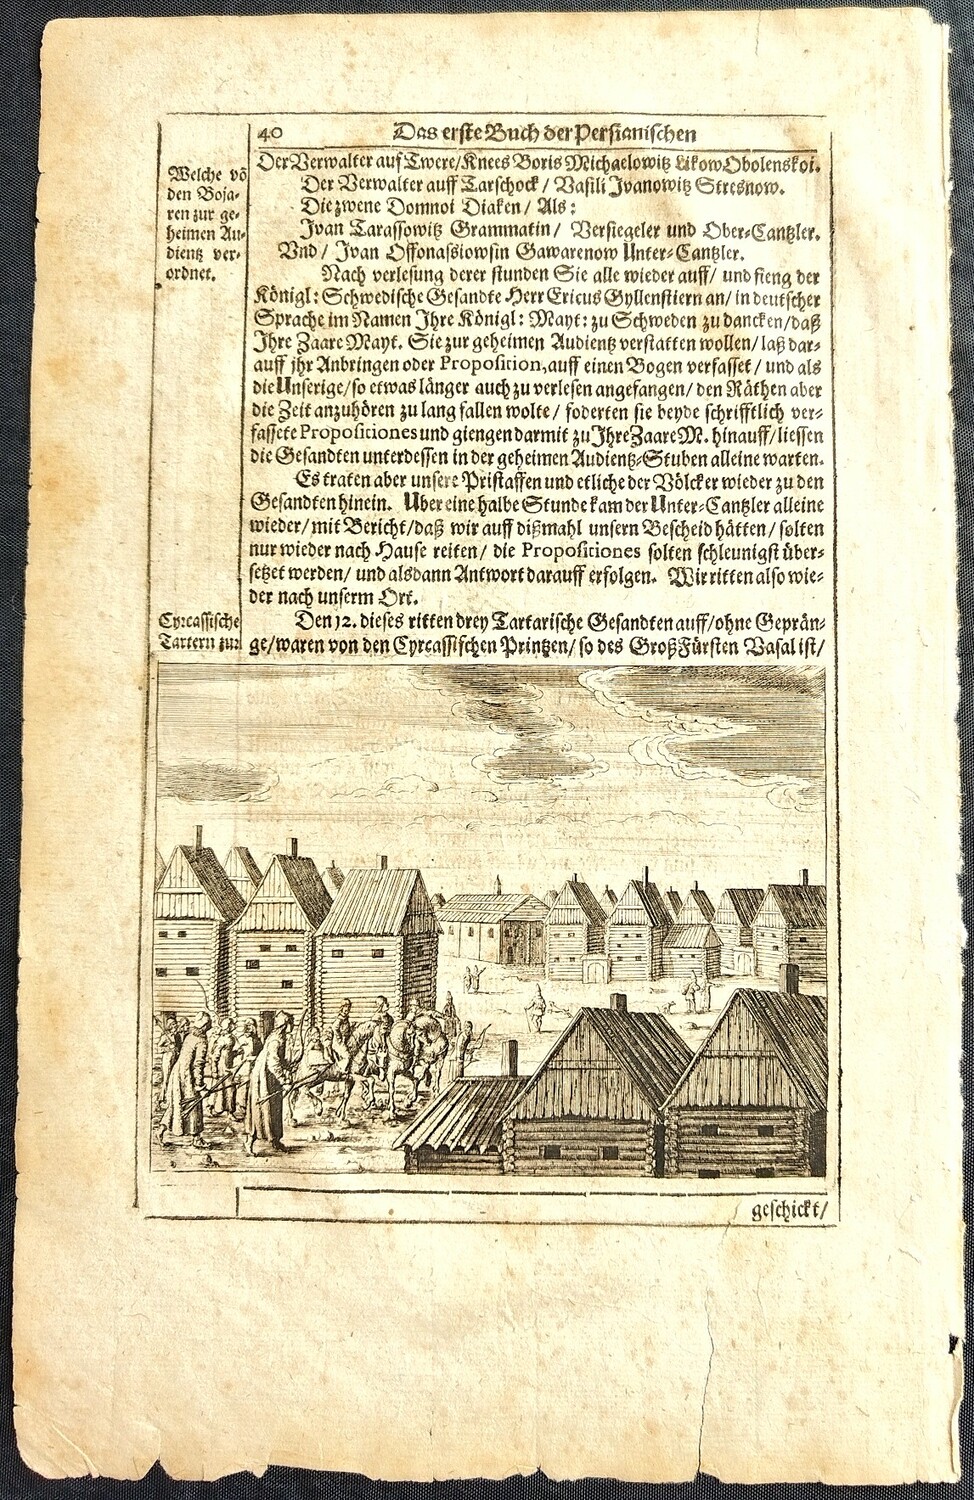 40 Das erste Buch der Persianischen
Welche võ
den Boja-
ren zur ge-
heimen Au-
dientz ver-
ordnet.
Der Verwalter auf Twere/Knees Boris Michaelowitz Likow Obolenskoi.
Der Verwalter auff Tarschock / Vasili Ivanowitz Stresnow.
Die zwene Domnoi Diaken / Als:
Ivan Tarassowitz Grammatin / Versiegeler und Ober-Cantzler.
Vnd / Ivan Offonassiowsin Gawarenow Unter-Cantzler.
Nach verlesung derer stunden Sie alle wieder auff/ und fieng der
Königl: Schwedische Gesandte Herr Ericus Gyllenstiern an/ in deutscher
Sprache im Namen Ihre Königl: Mayt: zu Schweden zu dancken/daß
Ihre Zaare Mayt. Sie zur geheimen Audientz verstatten wollen/ laß dar-
auff jhr Anbringen oder Proposition, auff einen Bogen verfasset/ und als
die Unserige/so etwas länger auch zu verlesen angefangen/ den Räthen aber
die Zeit anzuhören zu lang fallen wolte/ foderten sie beyde schrifftlich ver-
fassete Propositiones und giengen darmit zu Ihre Zaare M. hinauff/liessen
die Gesandten unterdessen in der geheimen Audientz-Stuben alleine warten.
Es traten aber unsere Pristaffen und etliche der Völcker wieder zu den
Gesandten hinein. Uber eine halbe Stunde kam der Unter-Cantzler alleine
wieder/mit Bericht/daß wir auff dißmahl unsern Bescheid hätten/ solten
nur wieder nach Hause reiten/ die Propositiones solten schleunigst über-
setzet werden/ und alsdann Antwort darauff erfolgen. Wir ritten also wie-
der nach unserm Ort.
Cyrcassische
Tartern zur
Den 12. dieses ritten drey Tartarische Gesandten auff/ohne Geprän-
ge/waren von den Cyrcassischen Printzen/ so des GroßFürsten Vasal ist/
geschickt/